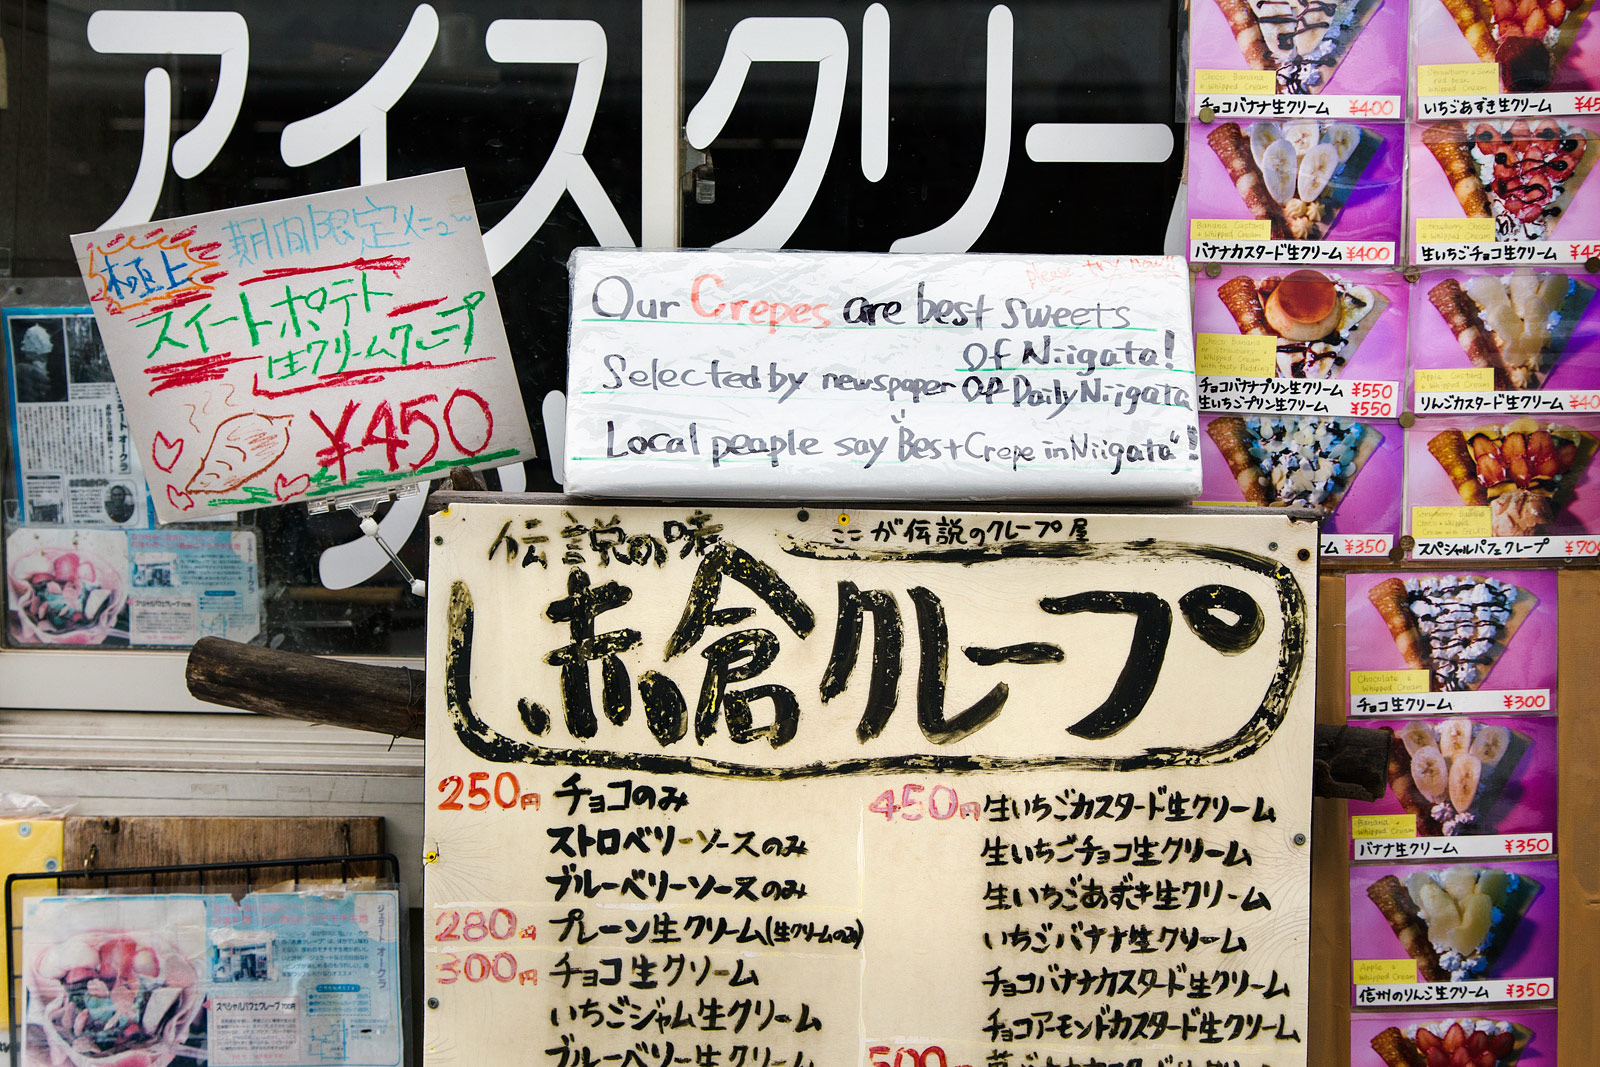 アイスクリー
期間限定メニュー
極上
スイートポテト
生クリームクレープ
¥450
please try now!!
Our Crepes are best sweets
Of Niigata!
Selected by newspaper OF Daily Niigata
Local peaple say "Best Crepe in Niigata"!
伝説の味
ここが伝説のクレープ屋
赤倉クレープ
250円 チョコのみ
ストロベリーソースのみ
ブルーベリーソースのみ
280円 プレーン生クリーム(生クリームのみ)
300円 チョコ生クリーム
いちごジャム生クリーム
ブルーベリー生クリーム
450円 生いちごカスタード生クリーム
生いちごチョコ生クリーム
生いちごあずき生クリーム
いちごバナナ生クリーム
チョコバナナカスタード生クリーム
チョコアーモンドカスタード生クリーム
500
Choco Banana
+ Whipped Cream
チョコバナナ生クリーム ¥400
いちごあずき生クリーム ¥45
Banana Custard
+ Whipped Cream
バナナカスタード生クリーム ¥400
Strawberry Choco
+ Whipped Cream
生いちごチョコ生クリーム ¥45
Choco Banana
or Strawberry +
Whipped Cream
with tasty Pudding
チョコバナナプリン生クリーム ¥550
生いちごプリン生クリーム ¥550
Apple Custard
+ Whipped Cream
りんごカスタード生クリーム ¥40
ーム ¥350
スペシャルパフェクレープ ¥700
Chocolate +
Whipped Cream
チョコ生クリーム ¥300
Banana +
Whipped Cream
バナナ生クリーム ¥350
Apple +
Whipped Cream
信州のりんご生クリーム ¥350
ジェラート オークラ
スペシャルパフェクレープ
ジェラート オークラ
スペシャルクレープ 700円